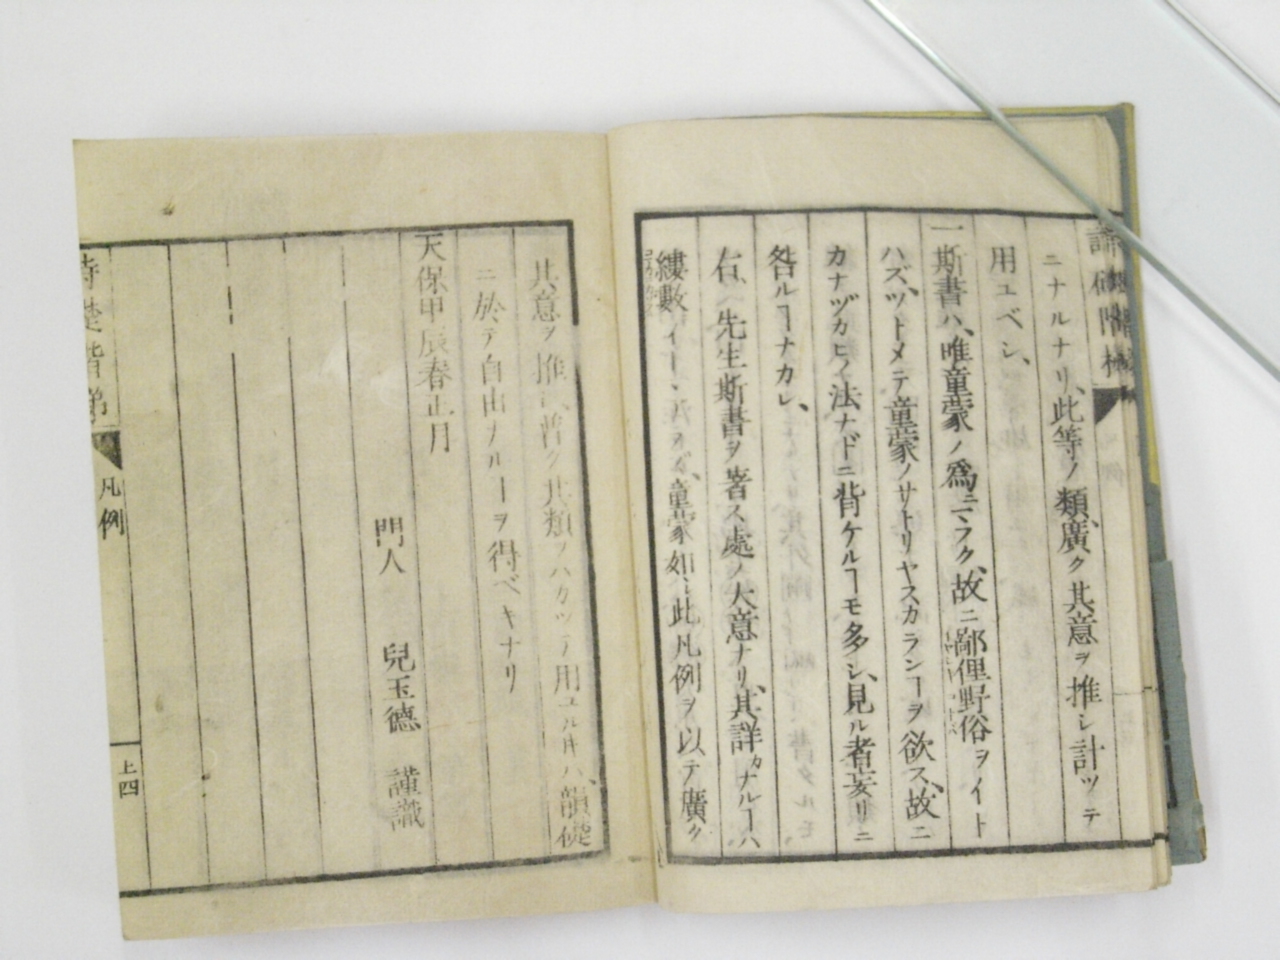 ニナルナリ、此等ノ類、廣ク其意ヲ推シ計ツテ
用ユベシ、
一斯書ハ、唯童蒙ノ爲ニマフク、故ニ鄙俚野俗ヲイト
ハズ、ツトメテ童蒙ノサトリヤスカランヿヲ欲ス、故ニ
カナヅカヒノ法ナドニ背ケルヿモ多シ、見ル者妄リニ
咎ルヿナカレ、
右、先生斯書ヲ著ス處ノ大意ナリ、其詳カナルヿハ
縷數 童蒙如此凡例ヲ以テ廣ク
其意ヲ推シ、普ク其類ヲハカツテ用ユル𪜈ハ、韻礎
ニ於テ自由ナルヿヲ得ベキナリ
天保甲辰春正月
門人 兒玉德 謹識
詩礎階梯
凡例
上四